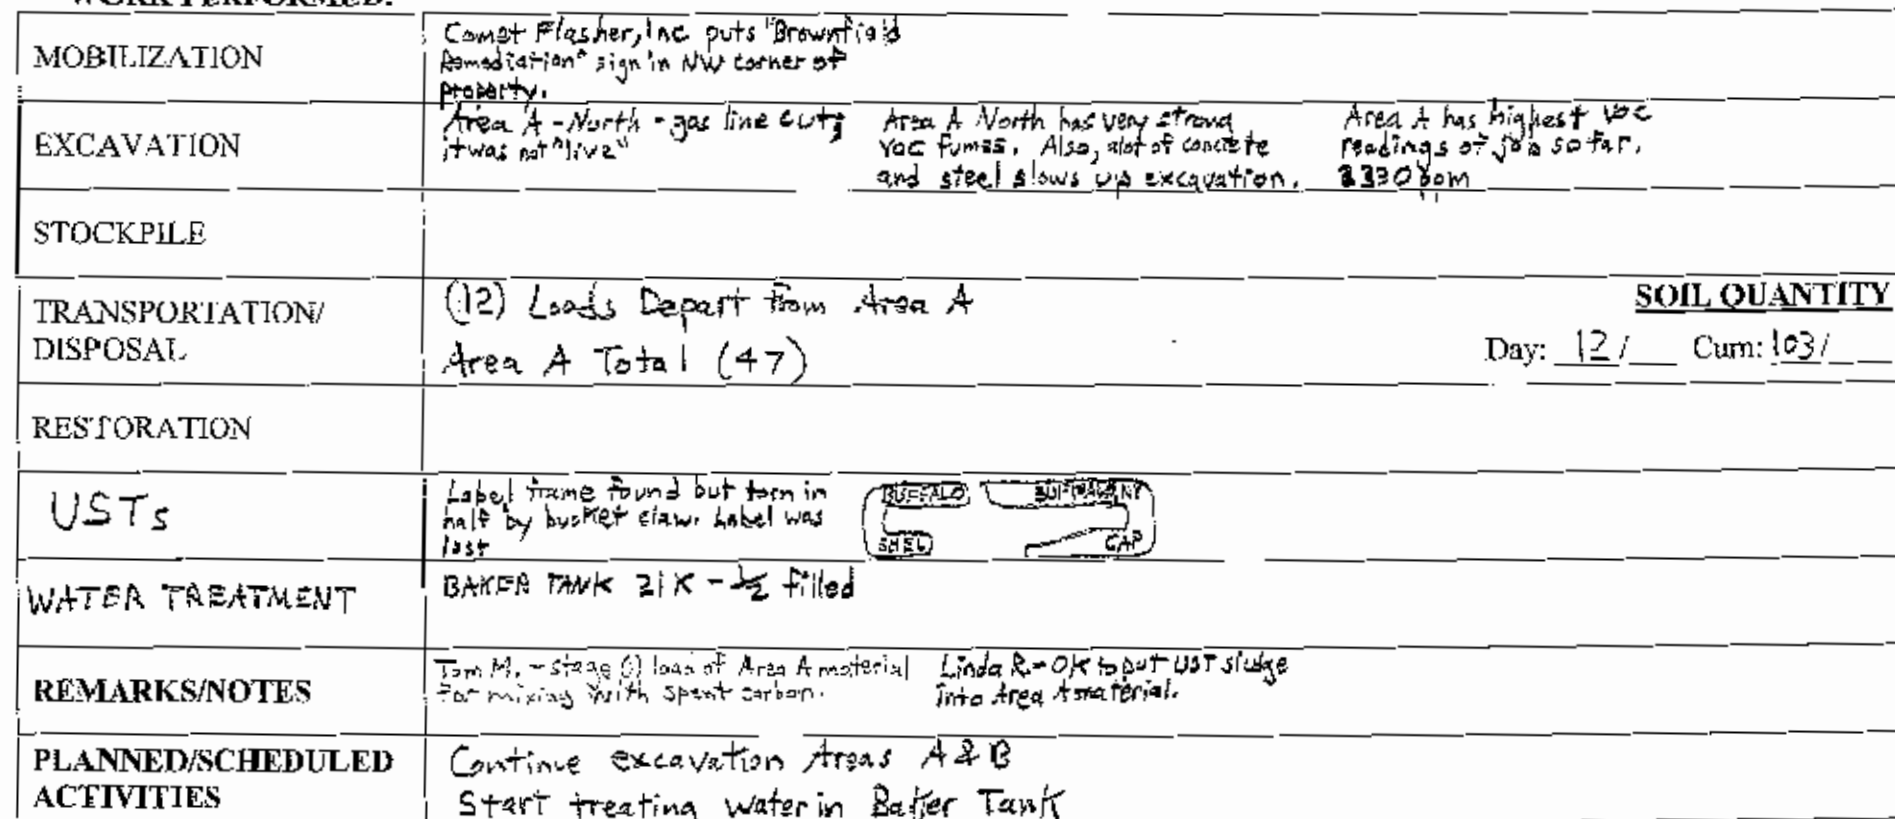 WORK PERFORMED:
MOBILIZATION
Comet Flasher, Inc puts "Brownfield
Remediation" sign in NW corner of
property.
EXCAVATION
Area A - North - gas line cut;
it was not "live"
Area A North has very strong
VOC fumes. Also, alot of concrete
and steel slows up excavation.
Area A has highest VOC
readings of job so far.
ppm
STOCKPILE
TRANSPORTATION/
DISPOSAL
(12) Loads Depart from Area A
Area A Total (47)
SOIL QUANTITY
Day: 12/___ Cum: 103/___
RESTORATION
USTs
Label frame found but torn in
half by bucket claw. Label was
lost
BUFFALO
SHEL
CAP
WATER TREATMENT
BAKER TANK 21K - 1/2 filled
REMARKS/NOTES
Tom M. - stage (1) load of Area A material
for mixing with spent carbon.
Linda R - OK to put UST sludge
into Area A material.
PLANNED/SCHEDULED
ACTIVITIES
Continue excavation Areas A & B
Start treating water in Baker Tank